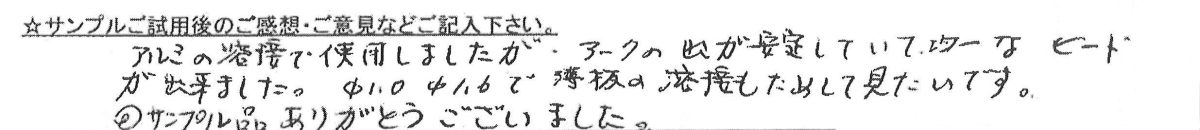 ☆サンプルご試用後のご感想・ご意見などご記入下さい。
アルミの溶接で使用しましたが、アークの出が安定していて、均一な ビード
が出来ました。 φ1.0 φ1.6で 薄板の溶接もためして見たいです。
サンプル品ありがとうございました。